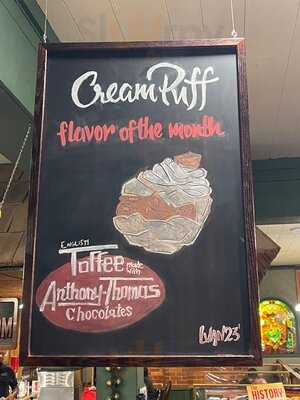 Cream Puff
flavor of the month
ENGLISH
Toffee made with
Anthony-Thomas
Chocolates
HISTORY